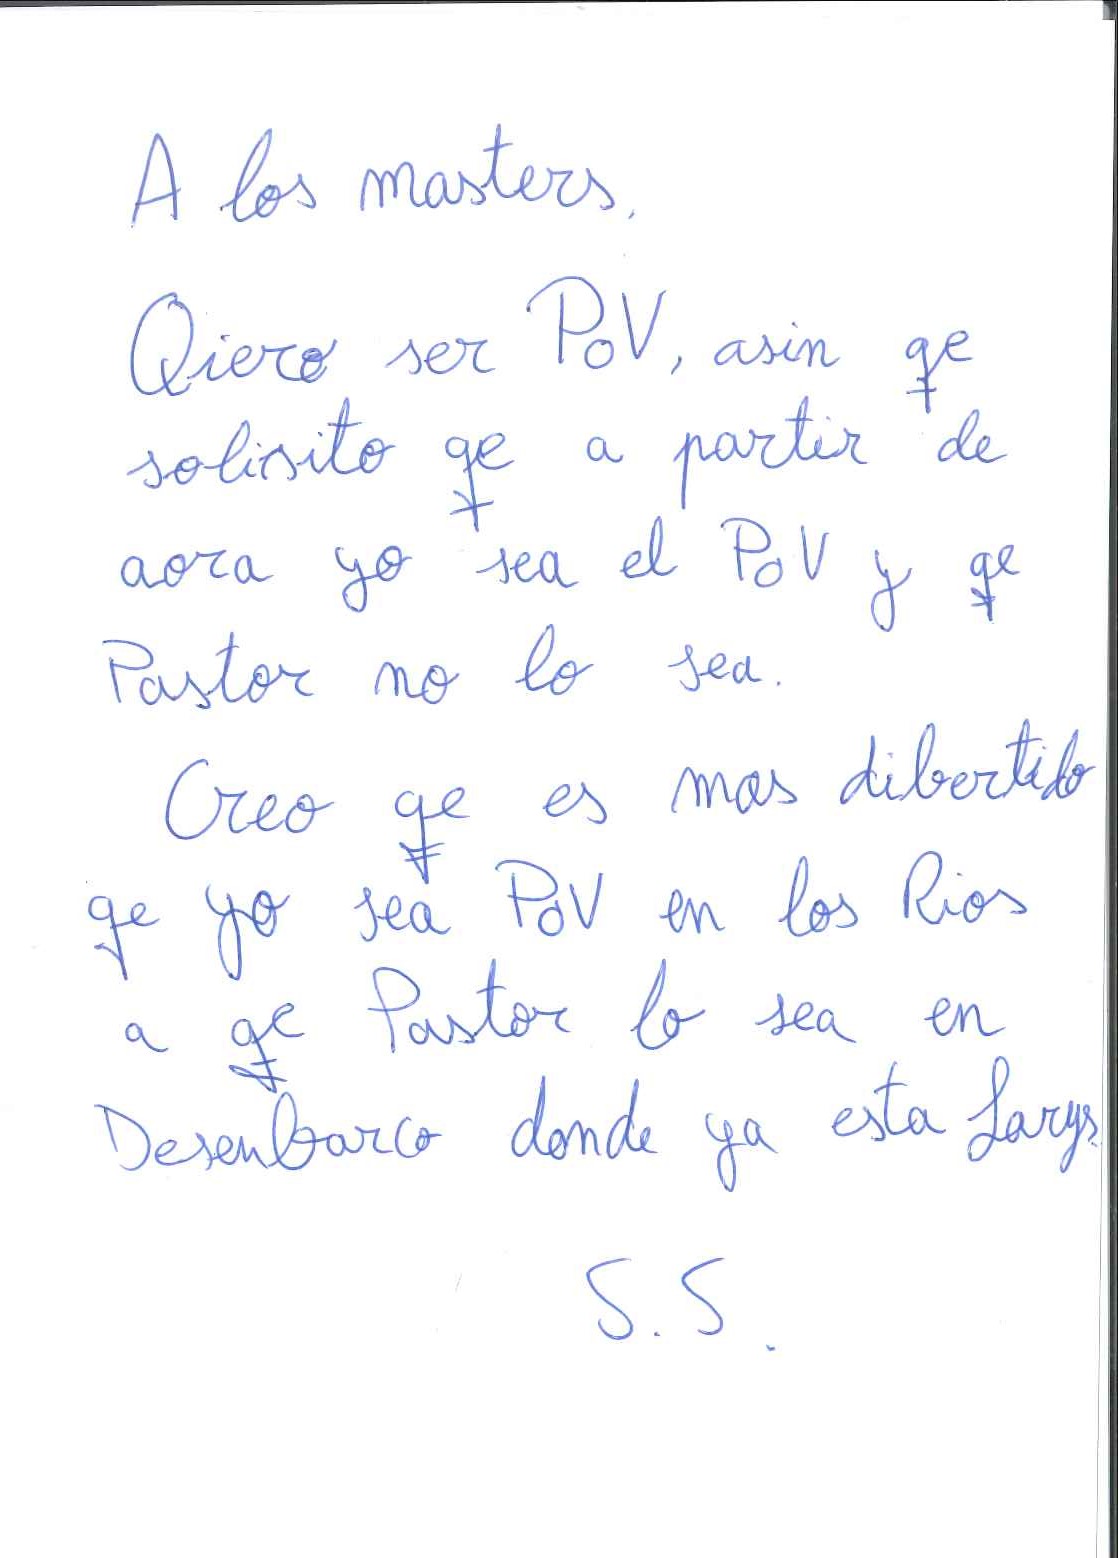 A los masters,
Qiero ser PoV, asin qe
solisito qe a partir de
aora yo sea el PoV y qe
Pastor no lo sea.
Creo qe es mas dibertido
qe yo sea PoV en los Rios
a qe Pastor lo sea en
Desenbarco donde ya esta Larys.
S. S.